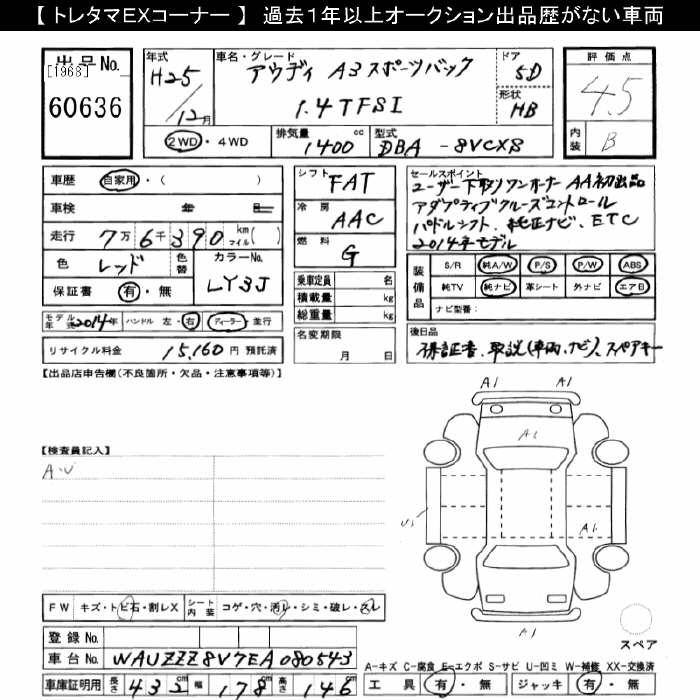 【 トレタマEXコーナー 】 過去１年以上オークション出品歴がない車両
出品No. [1968] 60636
年式 H25/12月
車名・グレード アウディ A3スポーツバック
1.4TFSI
ドア 5D
形状 HB
評価点 4.5
内装 B
2WD・4WD 排気量 1400 cc 型式 DBA-8VCXS
車歴 自家用・( )
車検 年 月
走行 7万6千390 km マイル( )
色 レッド 色替 カラーNo. LY3J
保証書 有・無
シフト FAT
冷房 AAC
燃料 G
乗車定員 名
積載量 kg
総重量 kg
名変期限
月 日
セールスポイント
ユーザー下取りワンオーナー AA初出品
アダプティブクルーズコントロール
パドルシフト、純正ナビ、ETC
2014年モデル
装備品 S/R 純A/W P/S P/W ABS
純TV 純ナビ 革シート 外ナビ エアB
ナビ型番：
モデル年式 2014年 ハンドル 左・右 ディーラー・並行
リサイクル料金 15,160円 預託済
後日品
保証書、取説(車両、ナビ)、スペアキー
【出品店申告欄(不良箇所・欠品・注意事項等)】
A1 A1
A1
【検査員記入】
A・U
U1
A1
A1
スペア
FW キズ・トビ石・割レX シート内装 コゲ・穴・汚レ・シミ・破レ・スレ
登録No.
車台No. WAUZZZ8V7EA080543
車庫証明用 長さ 432 cm 幅 178 cm 高さ 146 cm
A-キズ C-腐食 E-エクボ S-サビ U-凹ミ W-補修 XX-交換済
工具 有・無 ジャッキ 有・無